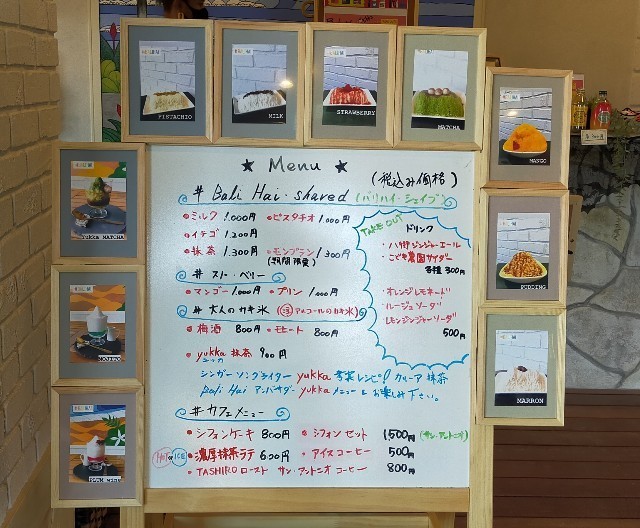 PISTACHIO
MILK
STRAWBERRY
MATCHA
MANGO
Yukka MATCHA
PUDDING
MOJITO
MARRON
PLUM wine
★ Menu ★ (税込み価格)
# Bali Hai・shaved (バリハイ・シェイブ)
・ミルク 1.000円 ・ピスタチオ 1.000円
・イチゴ 1.200円
・抹茶 1.300円 ・モンブラン 1300円
(期間限定)
# スノー・ベリー
・マンゴー 1.000円 ・プリン 1.000円
# 大人のカキ氷 (注 アルコールのカキ氷)
・梅酒 800円 ・モヒート 800円
・yukka 抹茶 900円
ユッカ
シンガーソングライター yukka 考案レシピ!
Bali Hai アンバサダー yukka メニューをお楽しみ下さい。
TAKE OUT
ドリンク
・こども農園サイダー
各種 300円
・オレンジレモネード
・ルージュソーダ
・レモンジンジャーソーダ
500円
# カフェメニュー
・シフォンケーキ 800円 ・シフォンセット 1500円 (サン・アントニオ)
HOT or ICE ・濃厚抹茶ラテ 600円 ・アイスコーヒー 500円
・TASHIRO ロースト サン・アントニオ コーヒー 800円